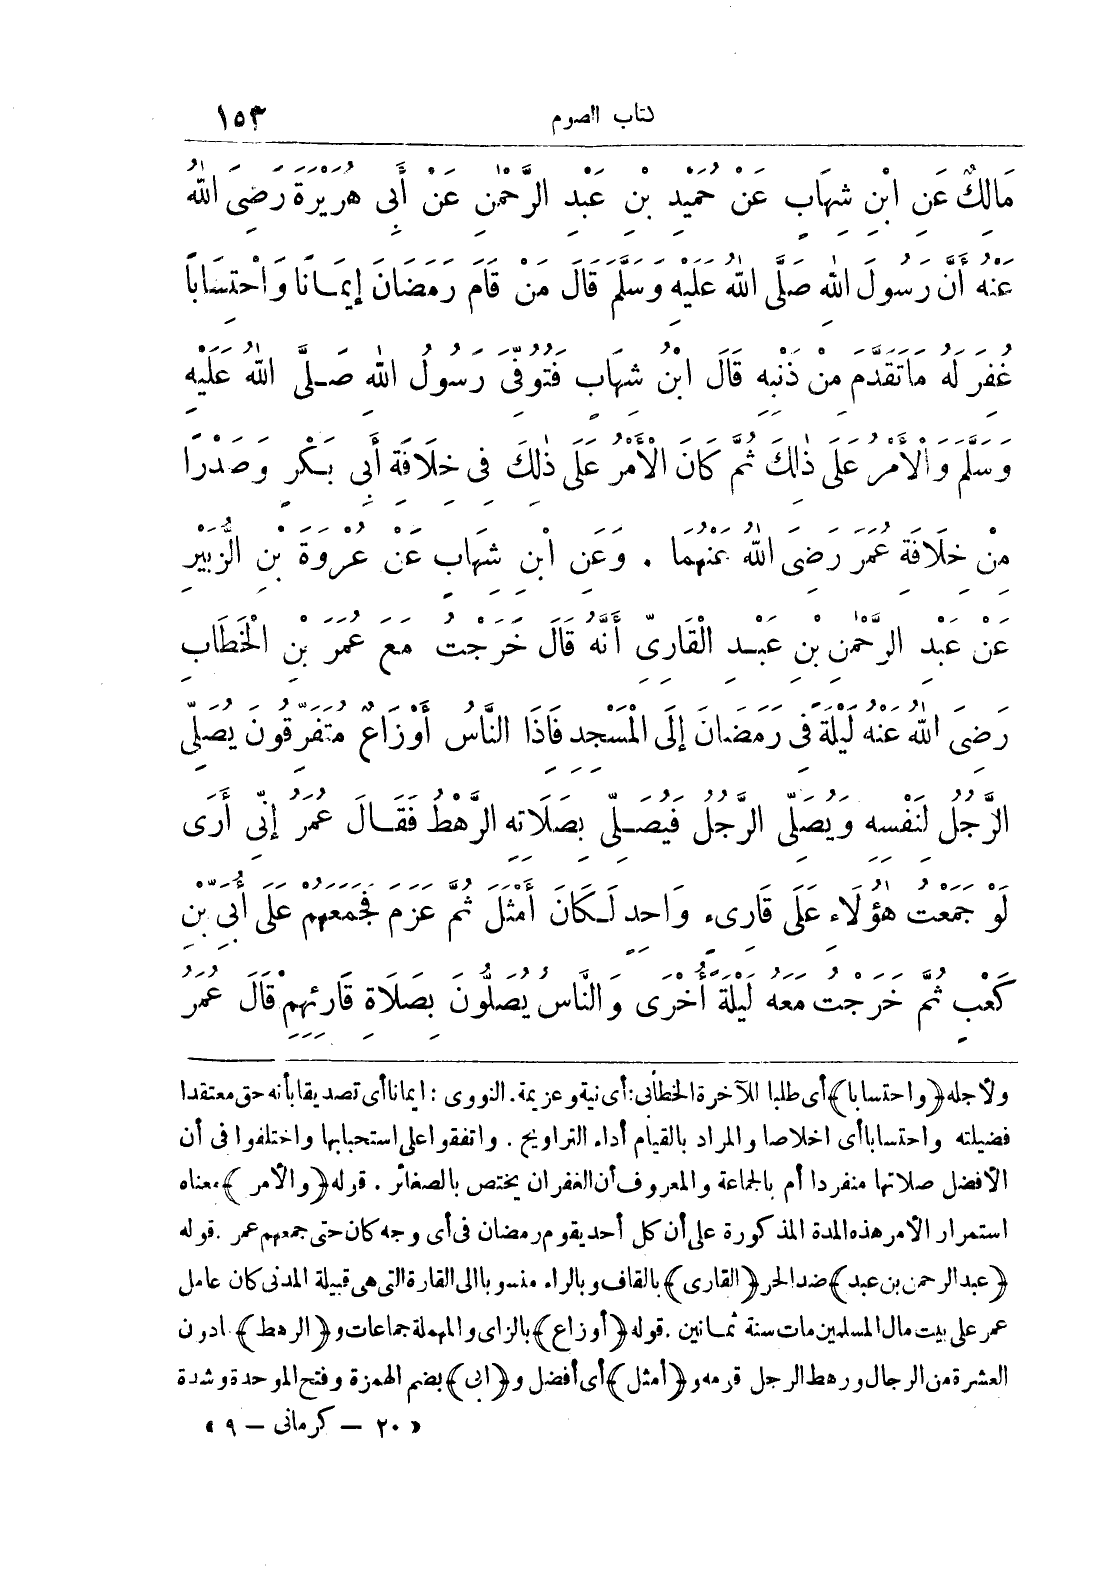 كتاب الصوم ١٥٣
مَالِكٌ عَنِ ابْنِ شِهَابٍ عَنْ حُمَيْدِ بْنِ عَبْدِ الرَّحْمٰنِ عَنْ أَبِى هُرَيْرَةَ رَضِىَ اللهُ
عَنْهُ أَنَّ رَسُولَ اللهِ صَلَّى اللهُ عَلَيْهِ وَسَلَّمَ قَالَ مَنْ قَامَ رَمَضَانَ إِيمَانًا وَاحْتِسَابًا
غُفِرَ لَهُ مَا تَقَدَّمَ مِنْ ذَنْبِهِ قَالَ ابْنُ شِهَابٍ فَتُوُفِّىَ رَسُولُ اللهِ صَلَّى اللهُ عَلَيْهِ
وَسَلَّمَ وَالْأَمْرُ عَلَى ذٰلِكَ ثُمَّ كَانَ الْأَمْرُ عَلَى ذٰلِكَ فِى خِلَافَةِ أَبِى بَكْرٍ وَصَدْرًا
مِنْ خِلَافَةِ عُمَرَ رَضِىَ اللهُ عَنْهُمَا . وَعَنِ ابْنِ شِهَابٍ عَنْ عُرْوَةَ بْنِ الزُّبَيْرِ
عَنْ عَبْدِ الرَّحْمٰنِ بْنِ عَبْدٍ الْقَارِىِّ أَنَّهُ قَالَ خَرَجْتُ مَعَ عُمَرَ بْنِ الْخَطَّابِ
رَضِىَ اللهُ عَنْهُ لَيْلَةً فِى رَمَضَانَ إِلَى الْمَسْجِدِ فَاِذَا النَّاسُ أَوْزَاعٌ مُتَفَرِّقُونَ يُصَلِّى
الرَّجُلُ لِنَفْسِهِ وَيُصَلِّى الرَّجُلُ فَيُصَلِّى بِصَلَاتِهِ الرَّهْطُ فَقَالَ عُمَرُ إِنِّى أَرَى
لَوْ جَمَعْتُ هٰؤُلَاءِ عَلَى قَارِىءٍ وَاحِدٍ لَكَانَ أَمْثَلَ ثُمَّ عَزَمَ فَجَمَعَهُمْ عَلَى أُبَىِّ بْنِ
كَعْبٍ ثُمَّ خَرَجْتُ مَعَهُ لَيْلَةً أُخْرَى وَالنَّاسُ يُصَلُّونَ بِصَلَاةِ قَارِئِهِمْ قَالَ عُمَرُ
ولأجله ﴿واحتسابا﴾ أى طلبا للآخرة الخطأنى: أى نية وعزيمة. النووى : ايمانا أى تصديقا بأنه حق معتقدا
فضيلته واحتسابا أى اخلاصا والمراد بالقيام أداء التراويح . واتفقوا على استحبابها واختلفوا فى أن
الأفضل صلاتها منفردا أم بالجماعة والمعروف أن الغفران يختص بالصغائر . قوله ﴿والأمر﴾ معناه
استمرار الأمر هذه المدة المذكورة على أن كل أحد يقوم رمضان فى أى وجه كان حتى جمعهم عمر . قوله
﴿عبد الرحمن بن عبد﴾ ضد الحر ﴿القارى﴾ بالقاف وبالراء منسوبا الى القارة التى هى قبيلة المدنى كان عامل
عمر على بيت مال المسلمين مات سنة ثمانين . قوله ﴿أوزاع﴾ بالزاى والمهملة جماعات و﴿الرهط﴾ مادون
العشرة من الرجال ورهط الرجل قومه و﴿أمثل﴾ أى أفضل و﴿ابى﴾ بضم الهمزة وفتح الموحدة وشدة
« ٢٠ – كرمانى – ٩ »